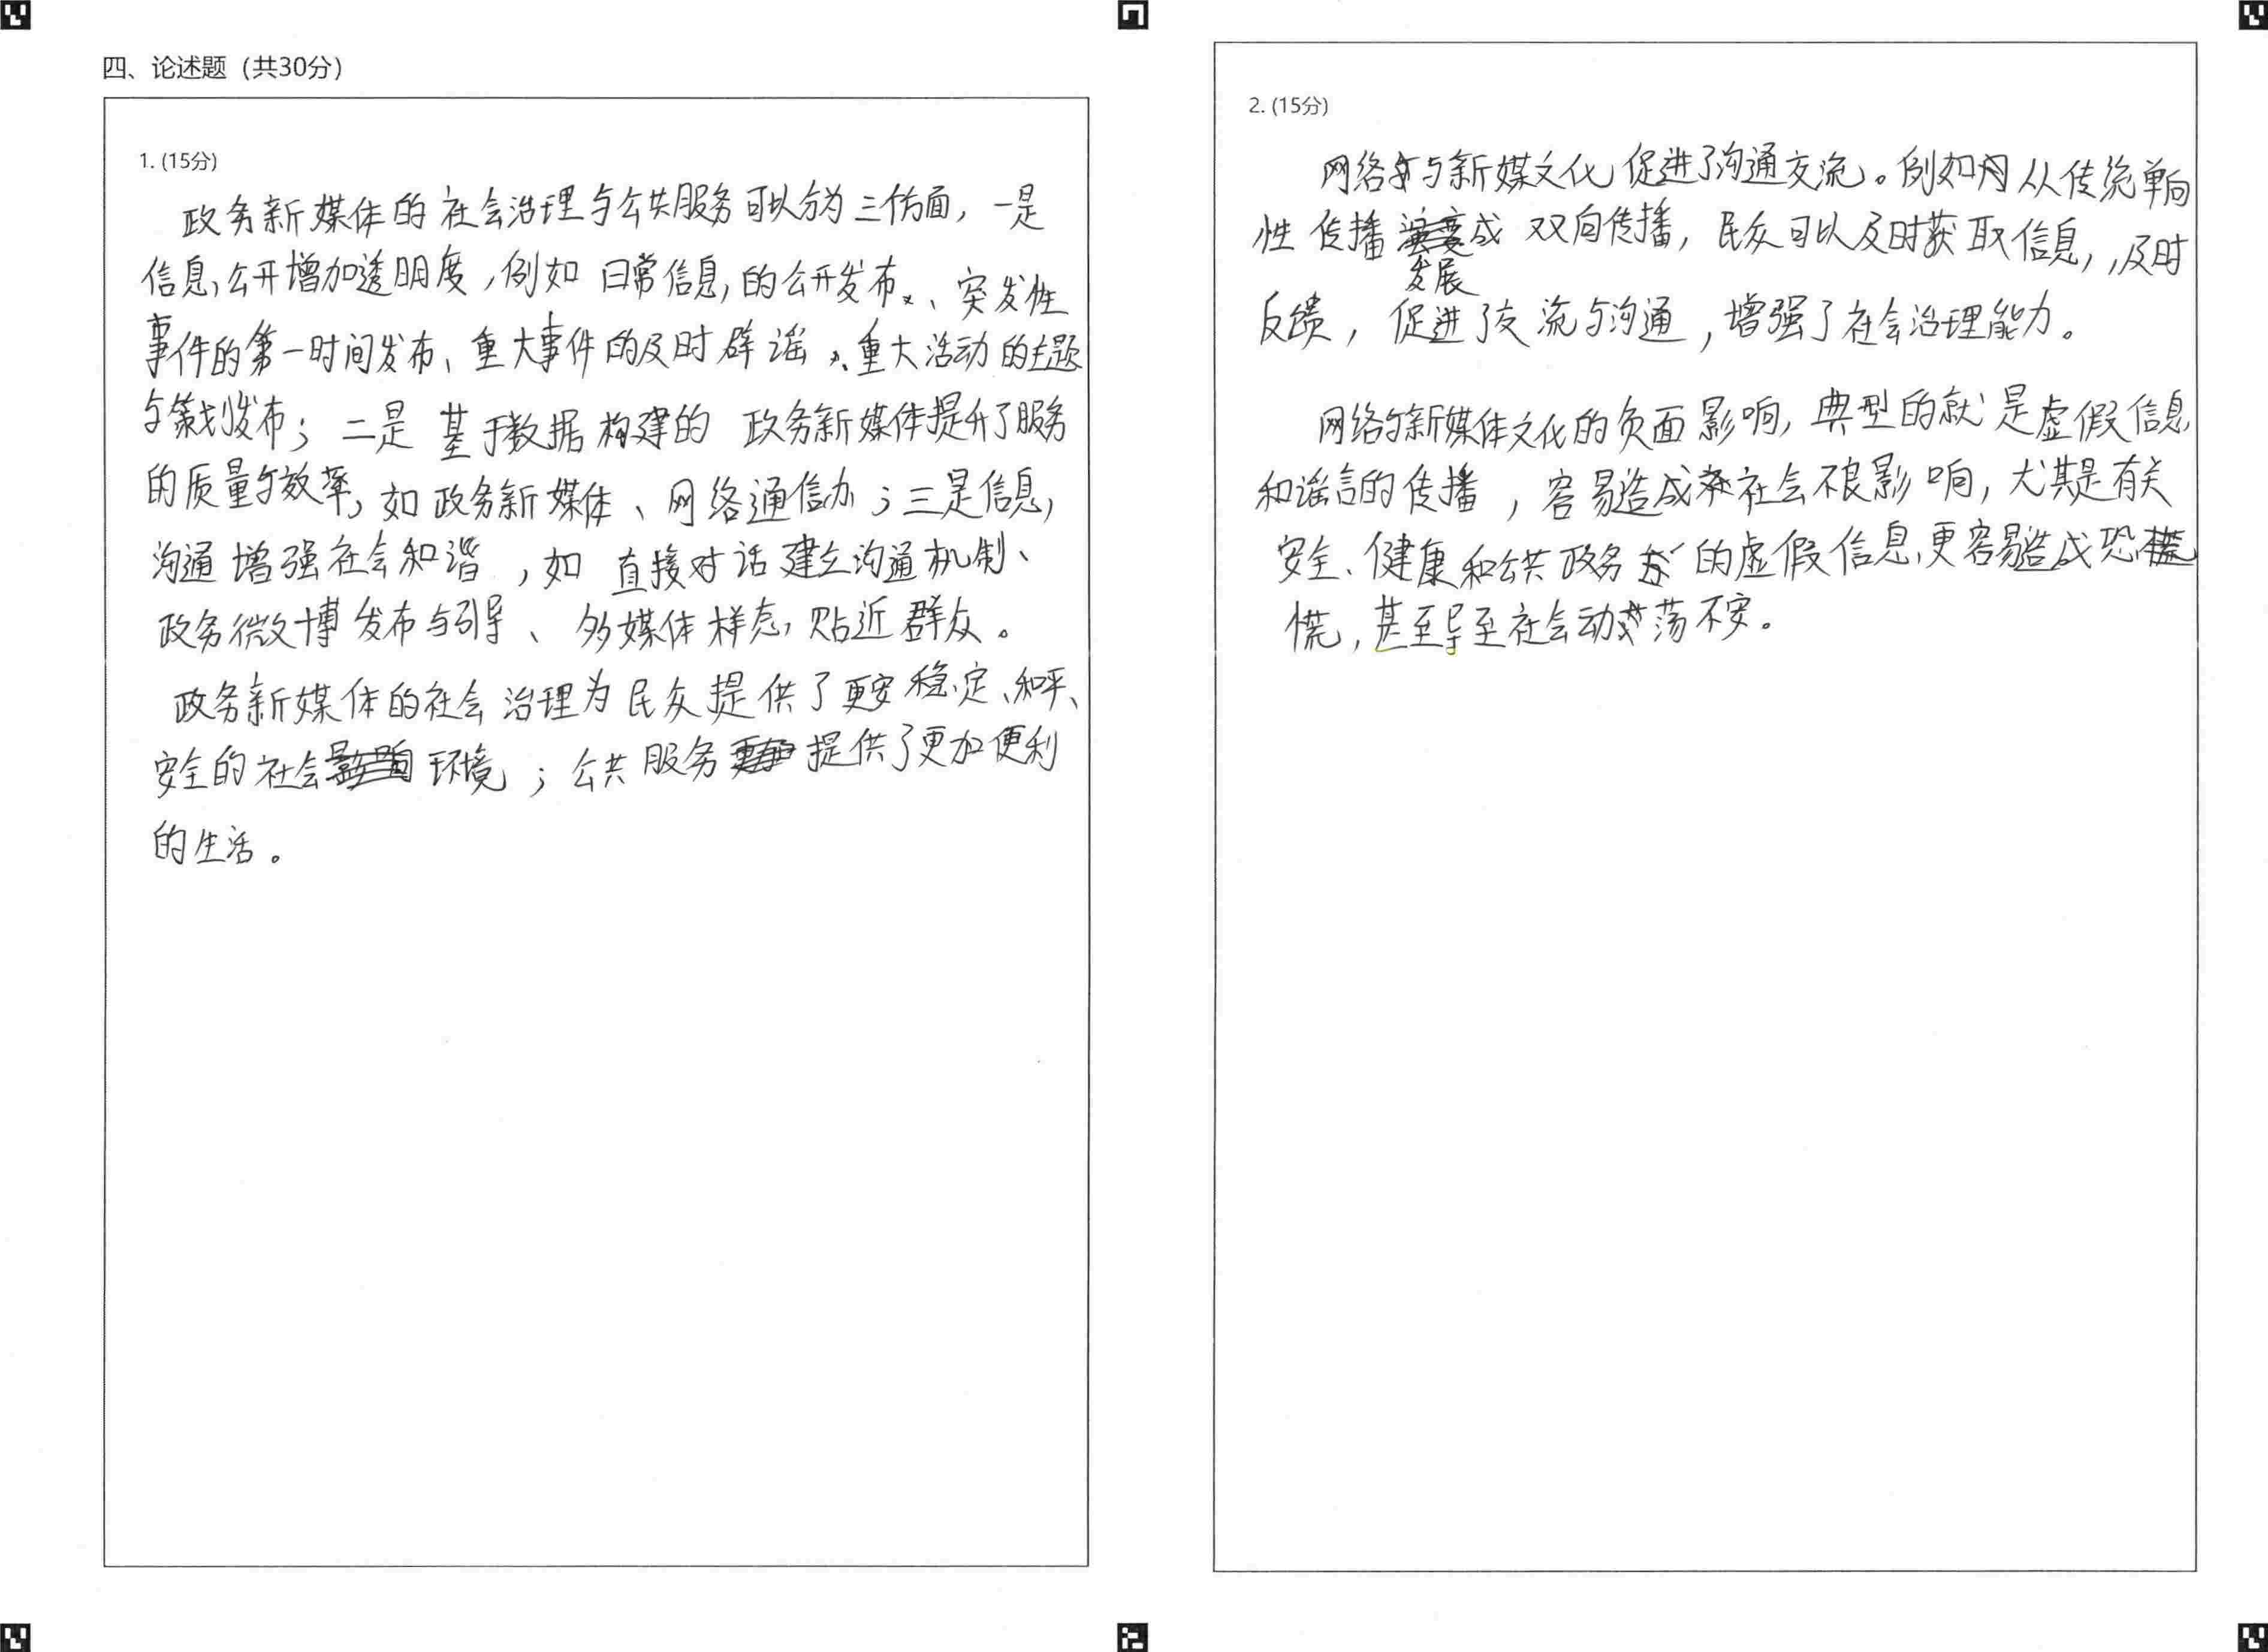 四、论述题（共30分）
1. (15分)
政务新媒体的社会治理与公共服务可以分为三个方面，一是
信息公开增加透明度，例如日常信息的公开发布、突发性
事件的第一时间发布、重大事件的及时辟谣、重大活动的主题
与策划发布；二是基于数据构建的政务新媒体提升了服务
的质量与效率，如政务新媒体、网络通信办；三是信息
沟通增强社会和谐，如直接对话建立沟通机制、
政务微博发布与引导、多媒体样态，贴近群众。
政务新媒体的社会治理为民众提供了更安稳定、和平、
安全的社会环境；公共服务提供了更加便利
的生活。
2. (15分)
网络与新媒文化促进了沟通交流。例如从传统单向
性传播发展成双向传播，民众可以及时获取信息，及时
反馈，促进了交流与沟通，增强了社会治理能力。
网络与新媒体文化的负面影响，典型的就是虚假信息
和谣言的传播，容易造成社会不良影响，尤其是有关
安全、健康和公共政务的虚假信息，更容易造成恐
慌，甚至导至社会动荡不安。